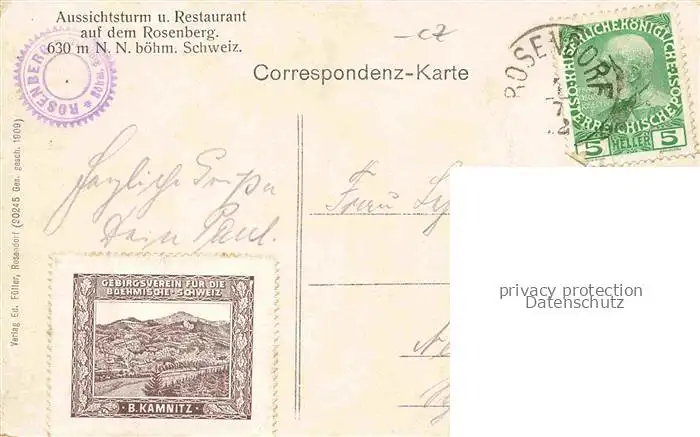 Aussichtsturm u. Restaurant
auf dem Rosenberg.
630 m N. N. böhm. Schweiz.
cz
Correspondenz-Karte
ROSENDORF
5 HELLER 5
ROSENBERG
Herzliche Grüße
Dein Paul.
Frau
Verlag Ed. Füller, Rosendorf (20245 Ges. gesch. 1909)
GEBIRGSVEREIN FÜR DIE
BOEHMISCHE-SCHWEIZ
· B. KAMNITZ ·
privacy protection
Datenschutz